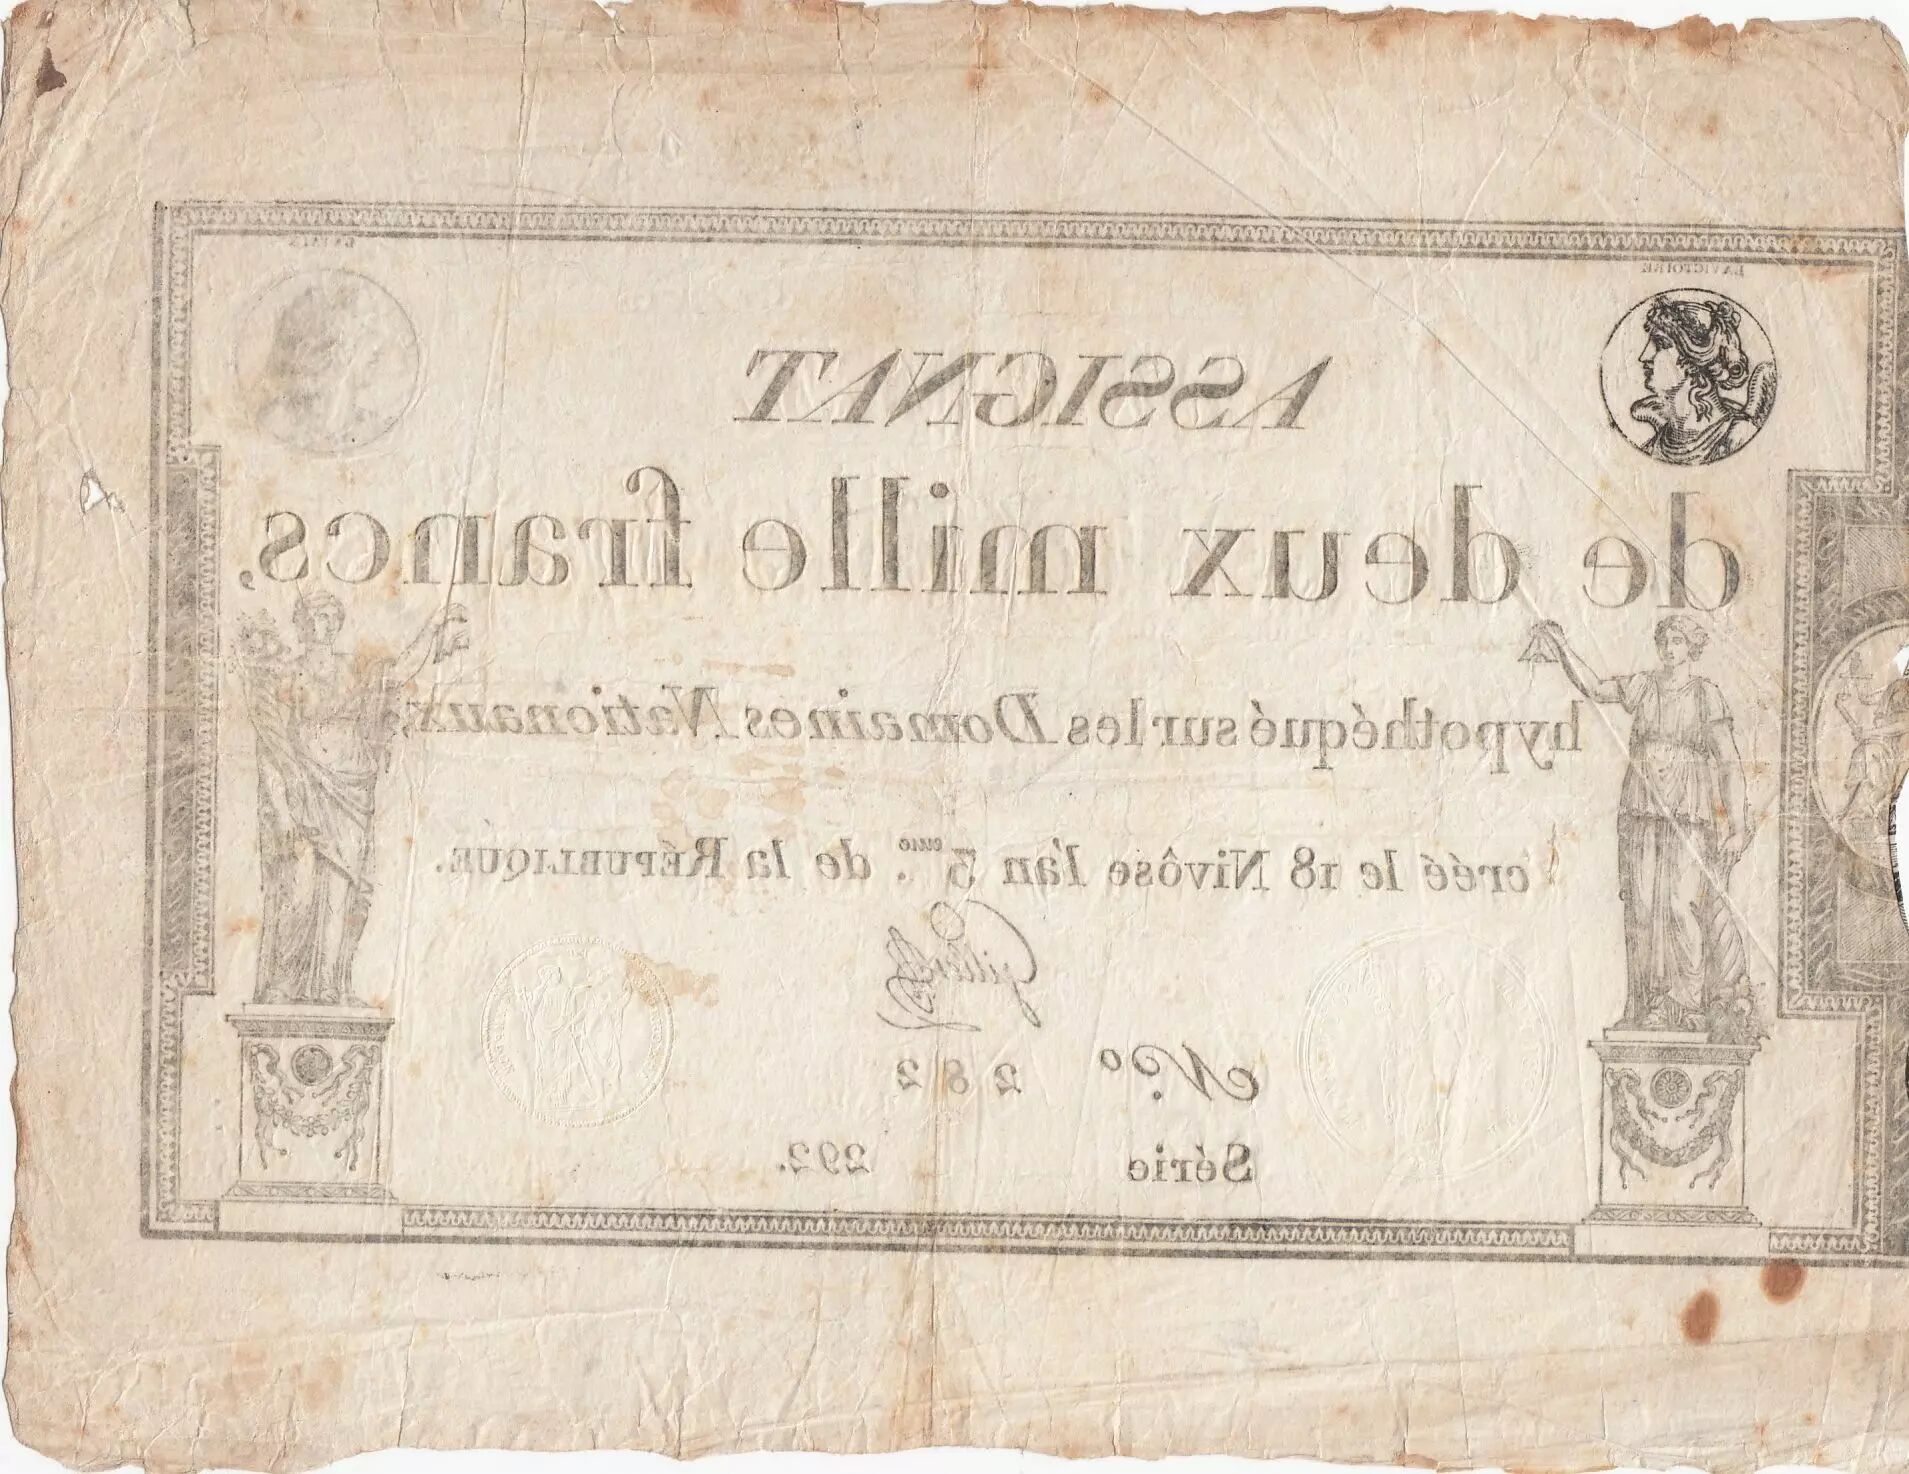 LA VICTOIRE
ASSIGNAT
de deux mille francs,
hypothéqué sur les Domaines Nationaux,
créé le 18 Nivôse l'an 3.eme de la RÉPUBLIQUE.
N.º 282
Série 292.